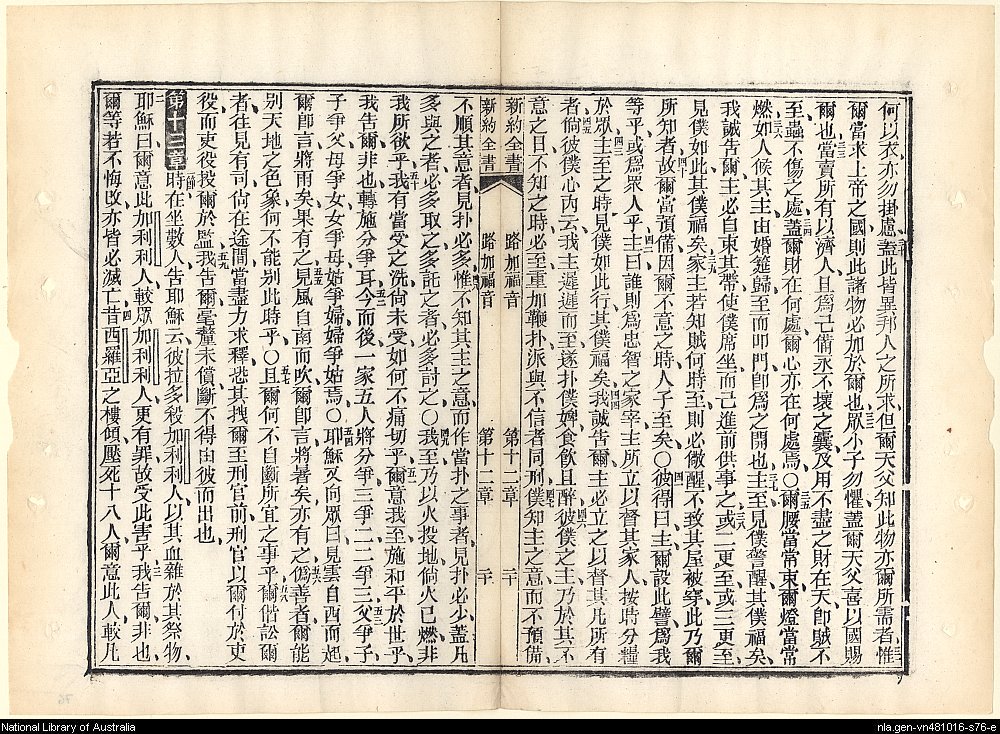 何以衣亦勿掛慮蓋此皆異邦人之所求但爾天父知此物亦爾所需者惟
爾當求上帝之國則此諸物必加於爾也眾小子勿懼蓋爾天父喜以國賜
爾也當賣所有以濟人且爲己備永不壞之囊及用不盡之財在天卽賊不
至蟲不傷之處蓋爾財在何處爾心亦在何處焉〇爾腰當常束爾燈當常
燃如人候其主由婚筵歸至而叩門卽爲之開也主至見僕警醒其僕福矣
我誠告爾主必自束其帶使僕席坐而己進前供事之或二更至或三更至
見僕如此其僕福矣家主若知賊何時至則必儆醒不致其屋被穿此乃爾
所知者故爾當預備因爾不意之時人子至矣〇彼得曰主爾設此譬爲我
等乎或爲眾人乎主曰誰則爲忠智之家宰主所立以督其家人按時分糧
於眾主至之時見僕如此行其僕福矣我誠告爾主必立之以督其凡所有
者倘彼僕心內云我主遲遲而至遂扑僕婢食飲且醉彼僕之主乃於其不
意之日不知之時必至重加鞭扑派與不信者同刑僕知主之意而不預備
新約全書 路加福音 第十二章 三十
新約全書 路加福音 第十二章 三十
不順其意者見扑必多惟不知其主之意而作當扑之事者見扑必少蓋凡
多與之者必多取之多託之者必多討之〇我至乃以火投地倘火已燃非
我所欲乎我有當受之洗尙未受如何不痛切乎爾意我至施和平於世乎
我告爾非也轉施分爭耳今而後一家五人將分爭三爭二二爭三父爭子
子爭父母爭女女爭母姑爭婦婦爭姑焉〇耶穌又向眾曰見雲自西而起
爾卽言將雨矣果有之見風自南而吹爾卽言將暑矣亦有之僞善者爾能
别天地之色象何不能别此時乎〇且爾何不自斷所宜之事乎爾偕訟爾
者往見有司倘在途間當盡力求釋恐其拽爾至刑官前刑官以爾付於吏
役而吏役投爾於監我告爾毫釐未償斷不得由彼而出也
第十三章 一節時在坐數人告耶穌云彼拉多殺加利利人以其血雜於其祭物
耶穌曰爾意此加利利人較眾加利利人更有罪故受此害乎我告爾非也
爾等若不悔改亦皆必滅亡昔西羅亞之樓傾壓死十八人爾意此人較凡
National Library of Australia
nla.gen-vn481016-s76-e